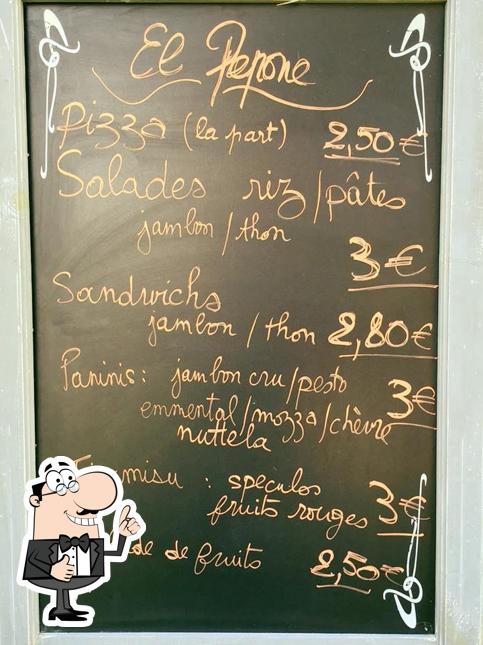 El Pepone
Pizza (la part) 2,50 €
Salades riz/pâtes
jambon/thon
3 €
Sandwichs
jambon/thon 2,80 €
Paninis: jambon cru/pesto
emmental/mozza/chèvre 3 €
nuttela
misu : speculos
fruits rouges 3 €
de de fruits 2,50 €